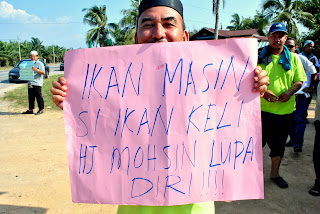 IKAN MASIN
SI IKAN KELI
HJ MOHSIN LUPA
DIRI!!!